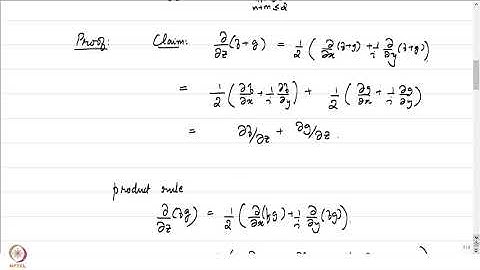 n+m≤2
Proof: Claim: ∂/∂z (f+g) = 1/2 ( ∂/∂x (f+g) + 1/i ∂/∂y (f+g) )
= 1/2 ( ∂f/∂x + 1/i ∂f/∂y ) + 1/2 ( ∂g/∂x + 1/i ∂g/∂y )
= ∂f/∂z + ∂g/∂z .
product rule
∂/∂z (fg) = 1/2 ( ∂/∂x (fg) + 1/i ∂/∂y (fg) )
NPTEL